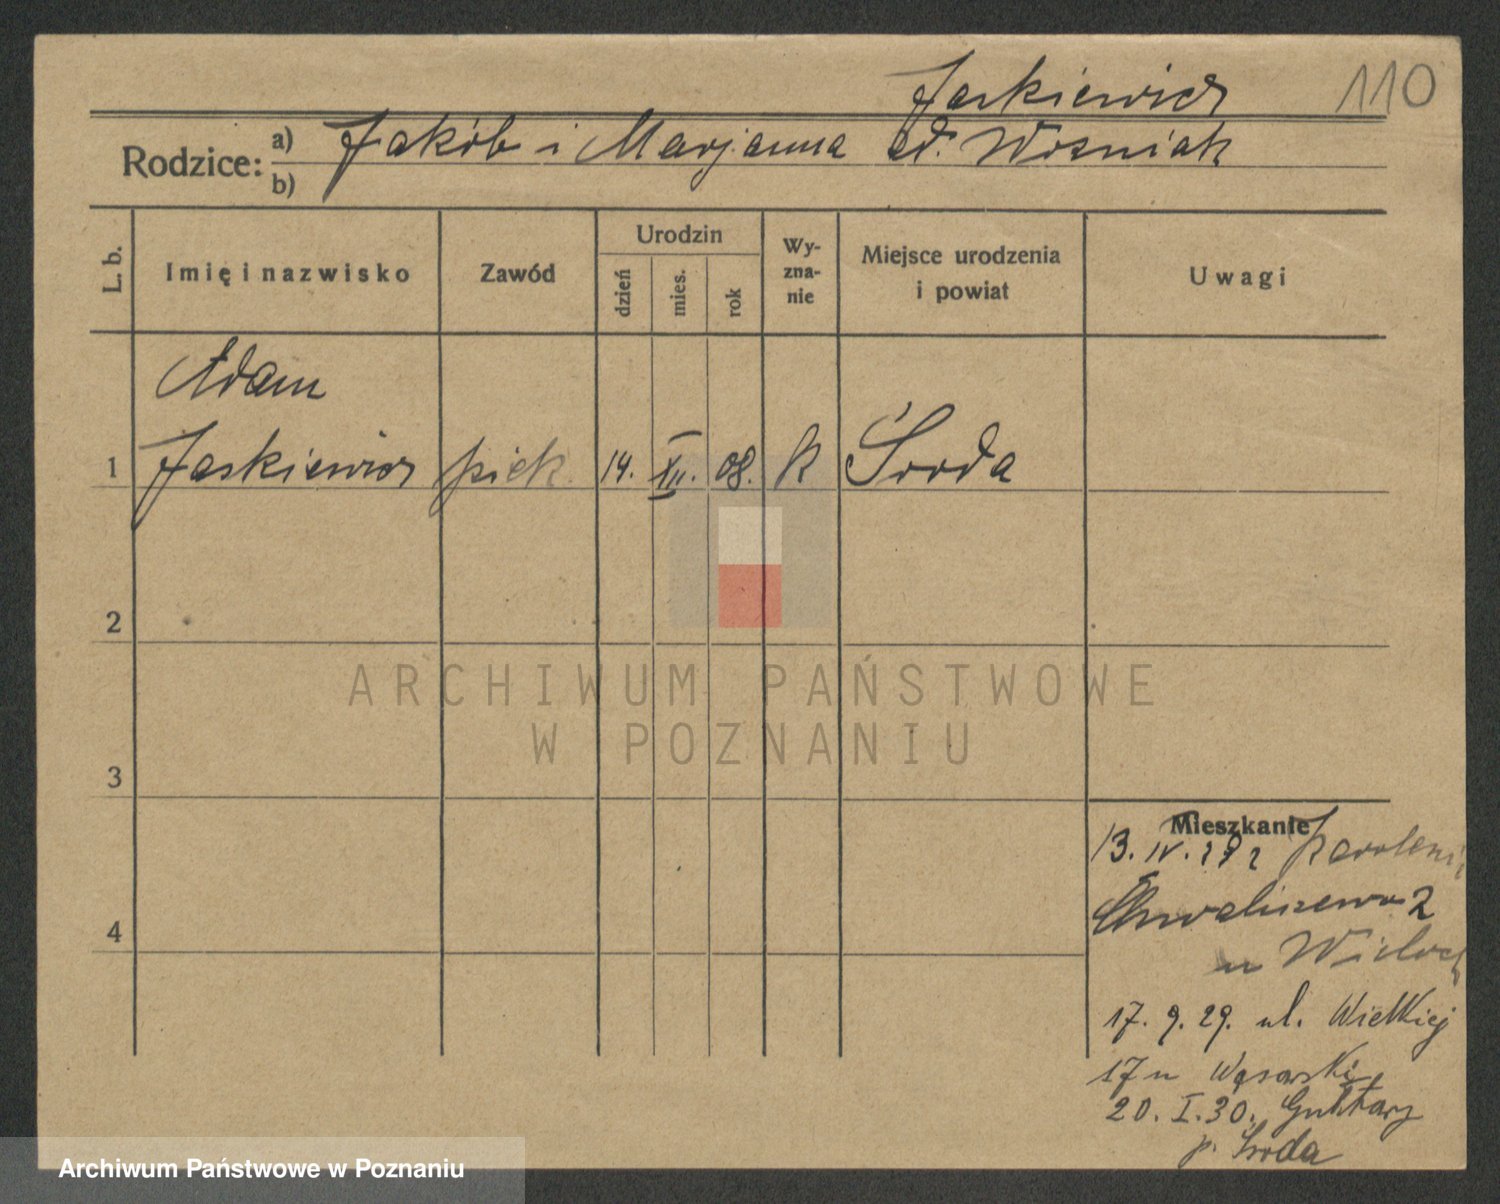 110
Jaskiewicz
Rodzice: a) Jakób i Marjanna od. Wozniak
b)
L. b.
Imię i nazwisko
Zawód
Urodzin
dzień
mies.
rok
Wy-
zna-
nie
Miejsce urodzenia
i powiat
Uwagi
Adam
1 Jaskiewicz piek. 14. XII. 08. k Środa
2
3
4
ARCHIWUM PAŃSTWOWE
W POZNANIU
Mieszkanie
13. IV.
Chwaliszewo 2
u Wieloch
17. 9. 29. ul. Wielkiej
17 u Wąsowski
20. I. 30.
p. Środa
Archiwum Państwowe w Poznaniu